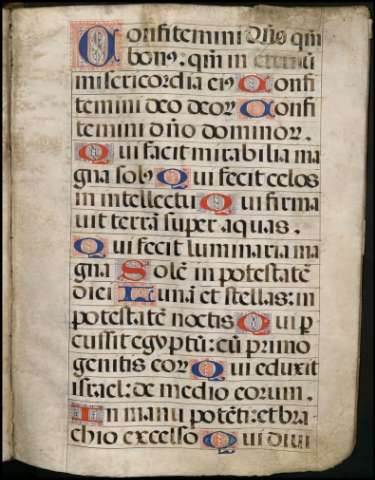 Confitemini dño qm̃
bonꝰ: qm̃ in eternũ
misericordia eiꝰ Confi
temini deo deoꝝ Confi
temini dño dominoꝝ.
Qui facit mirabilia ma
gna solꝰ Qui fecit celos
in intellectu Qui firma
uit terrã super aquas.
Qui fecit luminaria ma
gna Solẽ in potestatẽ
diei Lunã et stellas: in
potestatẽ noctis Qui ꝑ
cussit egyptũ: cũ primo
genitis eoꝝ Qui eduxit
israel: de medio eorum.
In manu potẽti: et bra
chio excelso Qui diui